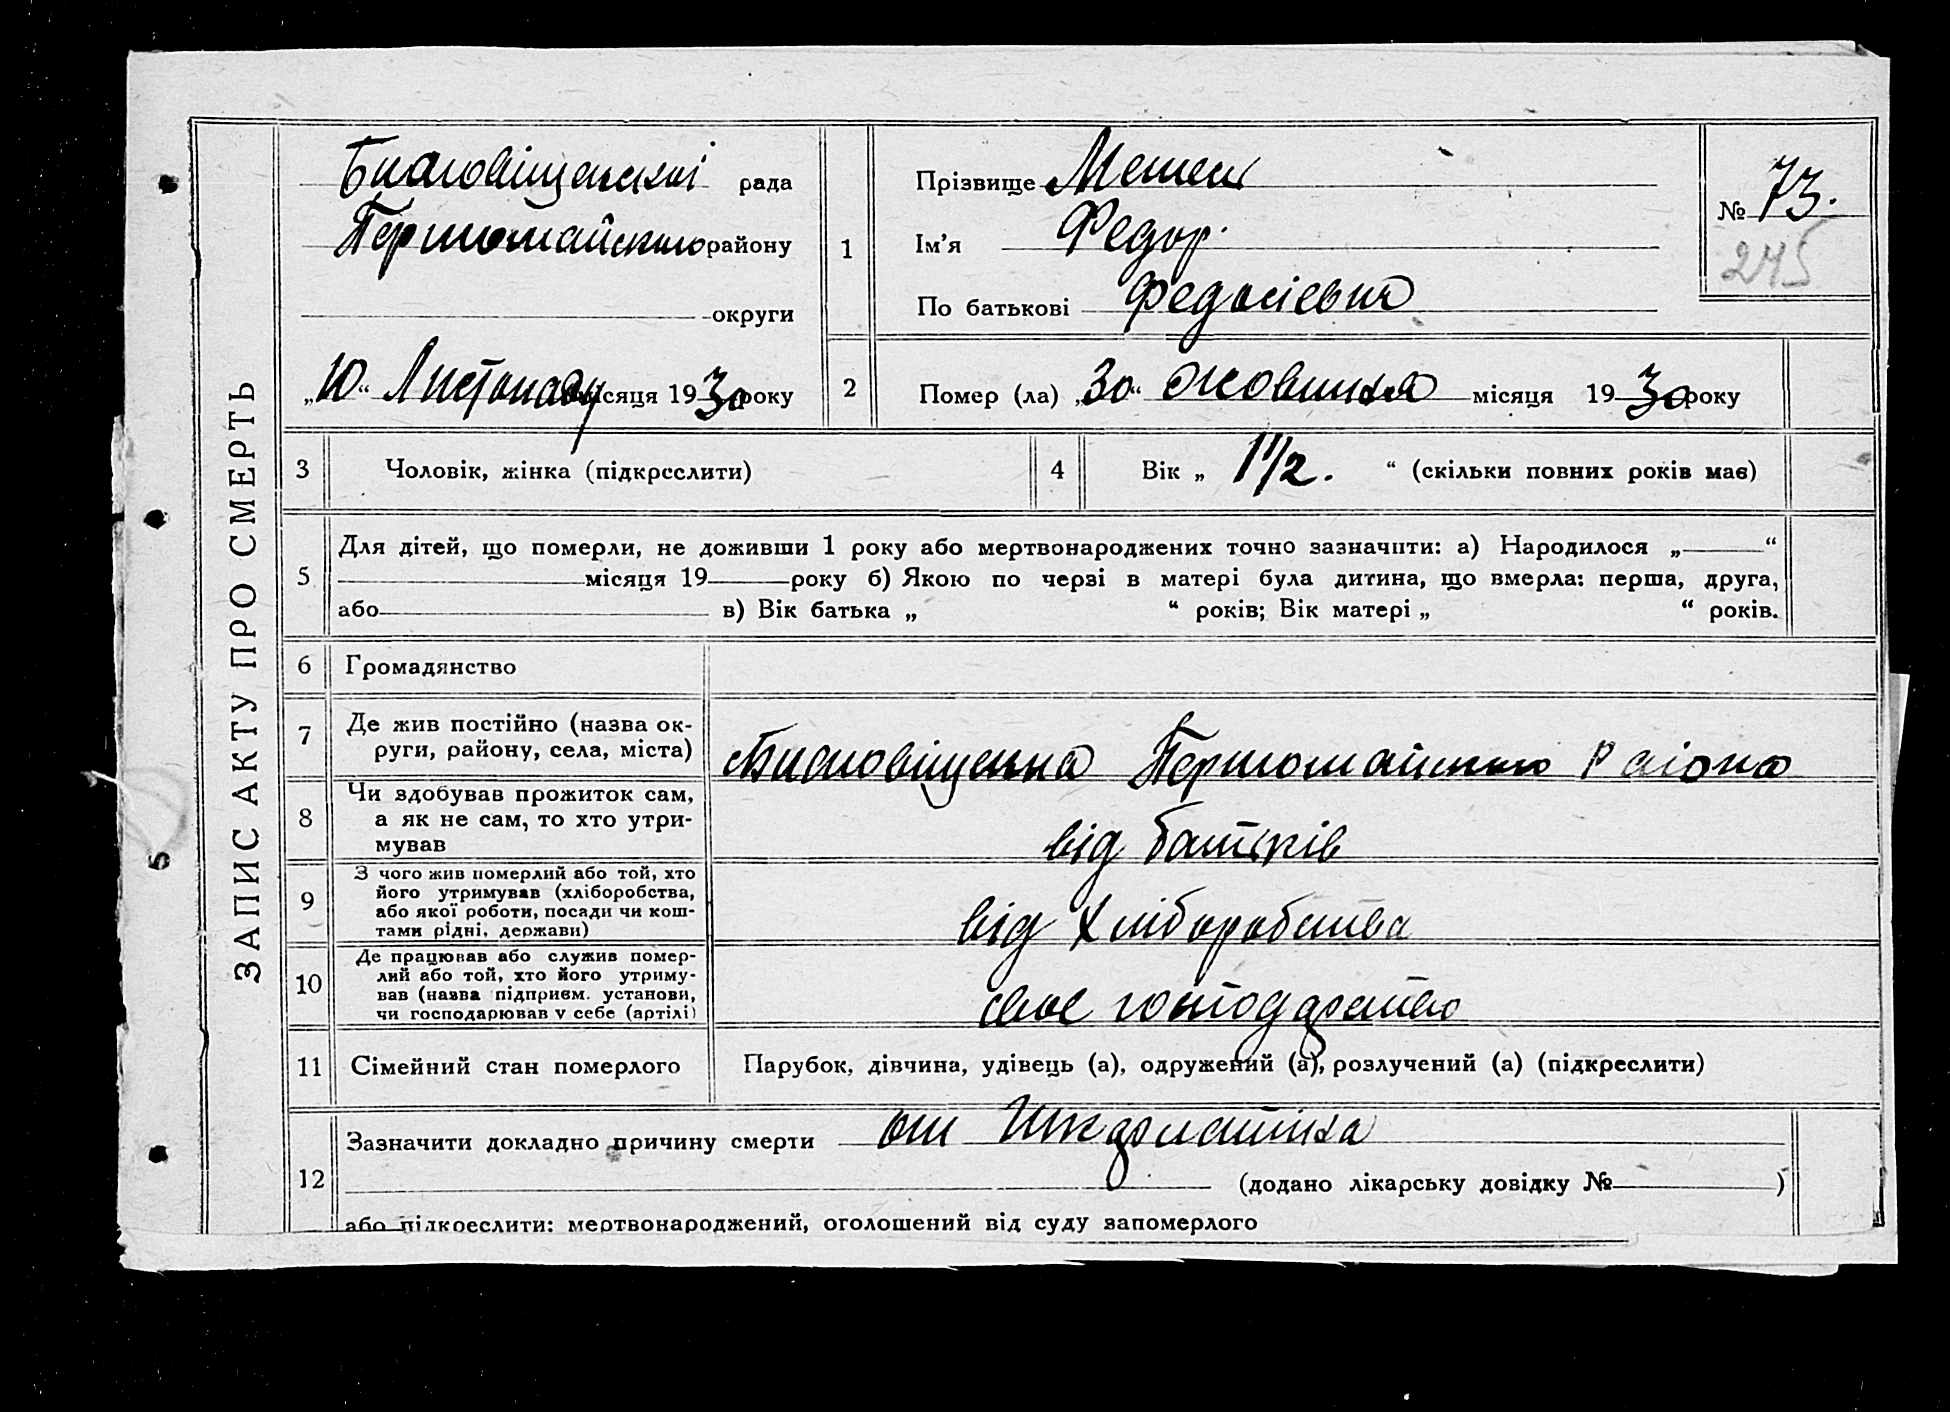 ЗАПИС АКТУ ПРО СМЕРТЬ
Благовіщенської рада
Першомайського району
округи
„10“ Листопаду місяця 1930 року
1
Прізвище
Ім’я Федор.
По батькові Федосієвич
№ 73.
245
2
Помер (ла) „30“ Жовтня місяця 1930 року
3 Чоловік, жінка (підкреслити)
4 Вік „ 1 1/2. “ (скільки повних років має)
5
Для дітей, що померли, не доживши 1 року або мертвонароджених точно зазначити: а) Народилося „ “
місяця 19 року б) Якою по черзі в матері була дитина, що вмерла: перша, друга,
або в) Вік батька „ “ років; Вік матері „ “ років.
6 Громадянство
7 Де жив постійно (назва ок-
руги, району, села, міста)
Благовіщенка Першомайського Району
8 Чи здобував прожиток сам,
а як не сам, то хто утри-
мував
від батьків
9 З чого жив померлий або той, хто
його утримував (хліборобства,
або якої роботи, посади чи кош-
тами рідні, держави)
від хліборобства
10 Де працював або служив помер-
лий або той, хто його утриму-
вав (назва підприєм. установи,
чи господарював у себе (артілі)
своє господарство
11 Сімейний стан померлого
Парубок, дівчина, удівець (а), одружений (а), розлучений (а) (підкреслити)
12
Зазначити докладно причину смерти от
(додано лікарську довідку № )
або підкреслити: мертвонароджений, оголошений від суду запомерлого
5